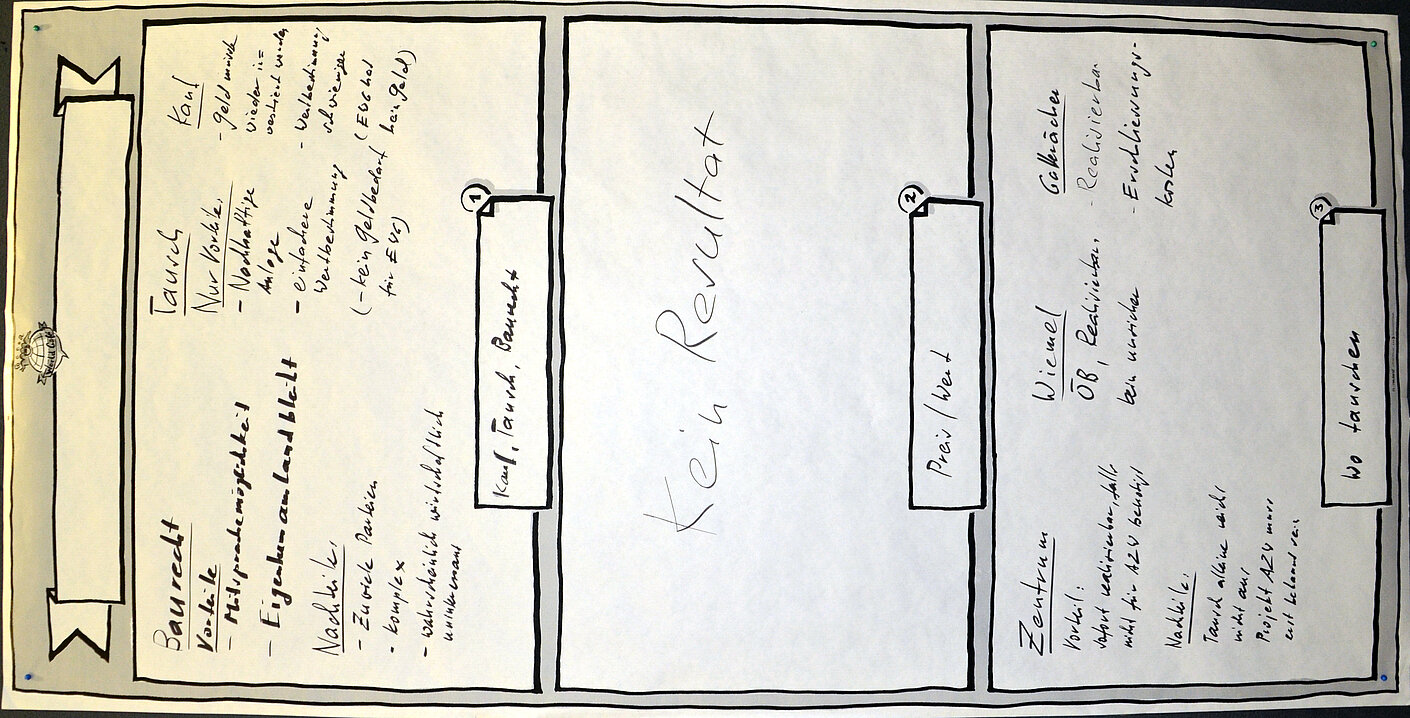 1
Kauf, Tausch, Baurecht
Baurecht
Vorteile
- Mitsprachemöglichkeit
- Eigentum am Land bleibt
Nachteile,
- Zuviele Parteien
- Komplex
- Wahrscheinlich wirtschaftlich
uninteressant
Tausch
Nur Vorteile,
- Nachhaltige
Anlage
- einfachere
Wertbestimmung
(- kein Geldbedarf
für EWG)
Kauf
- Geld muss
wieder in=
vestiert werden
- Wertbestimmung
schwieriger
(EWG hat
kein Geld)
2
Preis/Wert
Kein Resultat
3
Wo tauschen
Zentrum
Vorteil:
sofort realisierbar, falls
nicht für AZV benötigt
Nachteile,
Tausch alleine reicht
nicht aus
Projekt AZV muss
erst bekannt sein
Wiemel
ÖB, Realisierbar,
kein unsicher
- Realisierbar
- Erschliessungs-
kosten